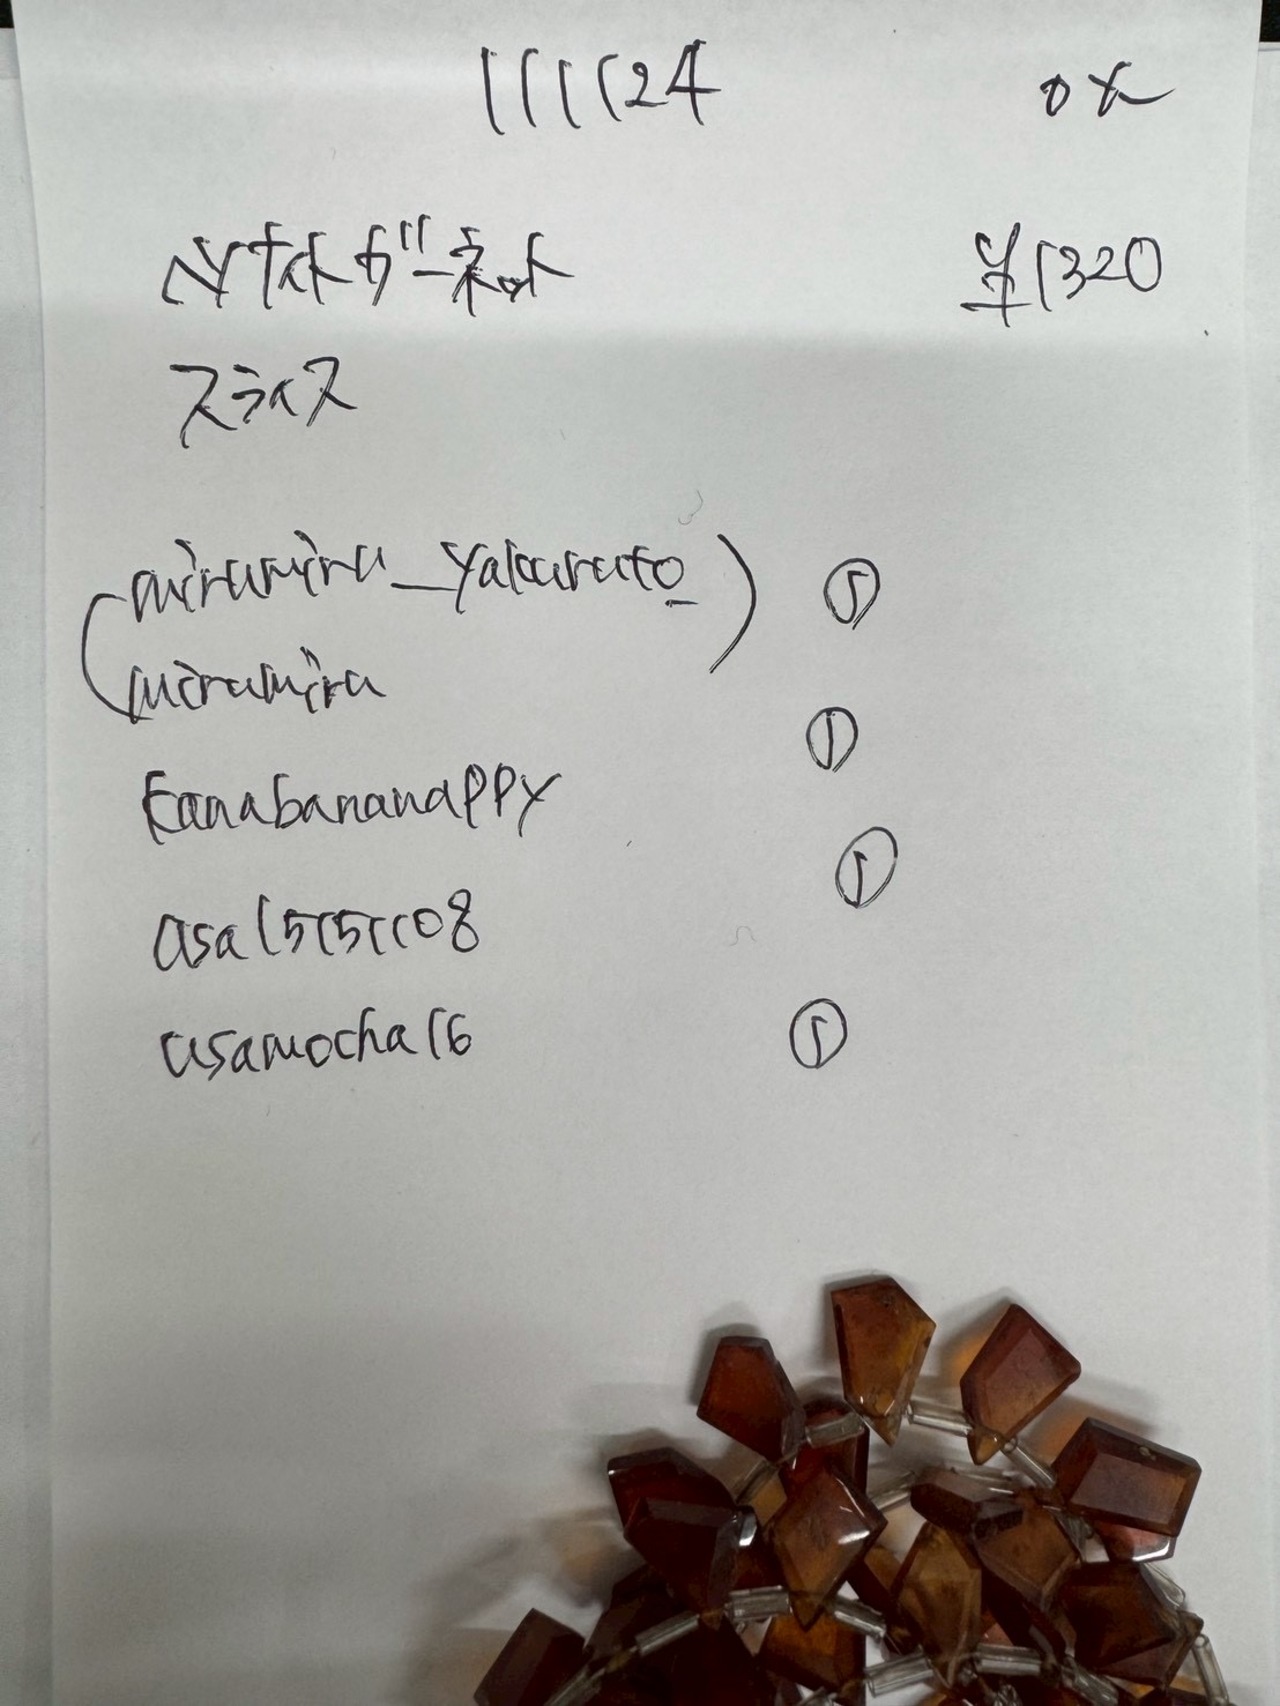 111124 OK
ヘソナイトガーネット ¥1320
スライス
(miramira_yakuruto) ①
miramira
kanabananappy ①
asa15151108 ①
usamocha16 ①